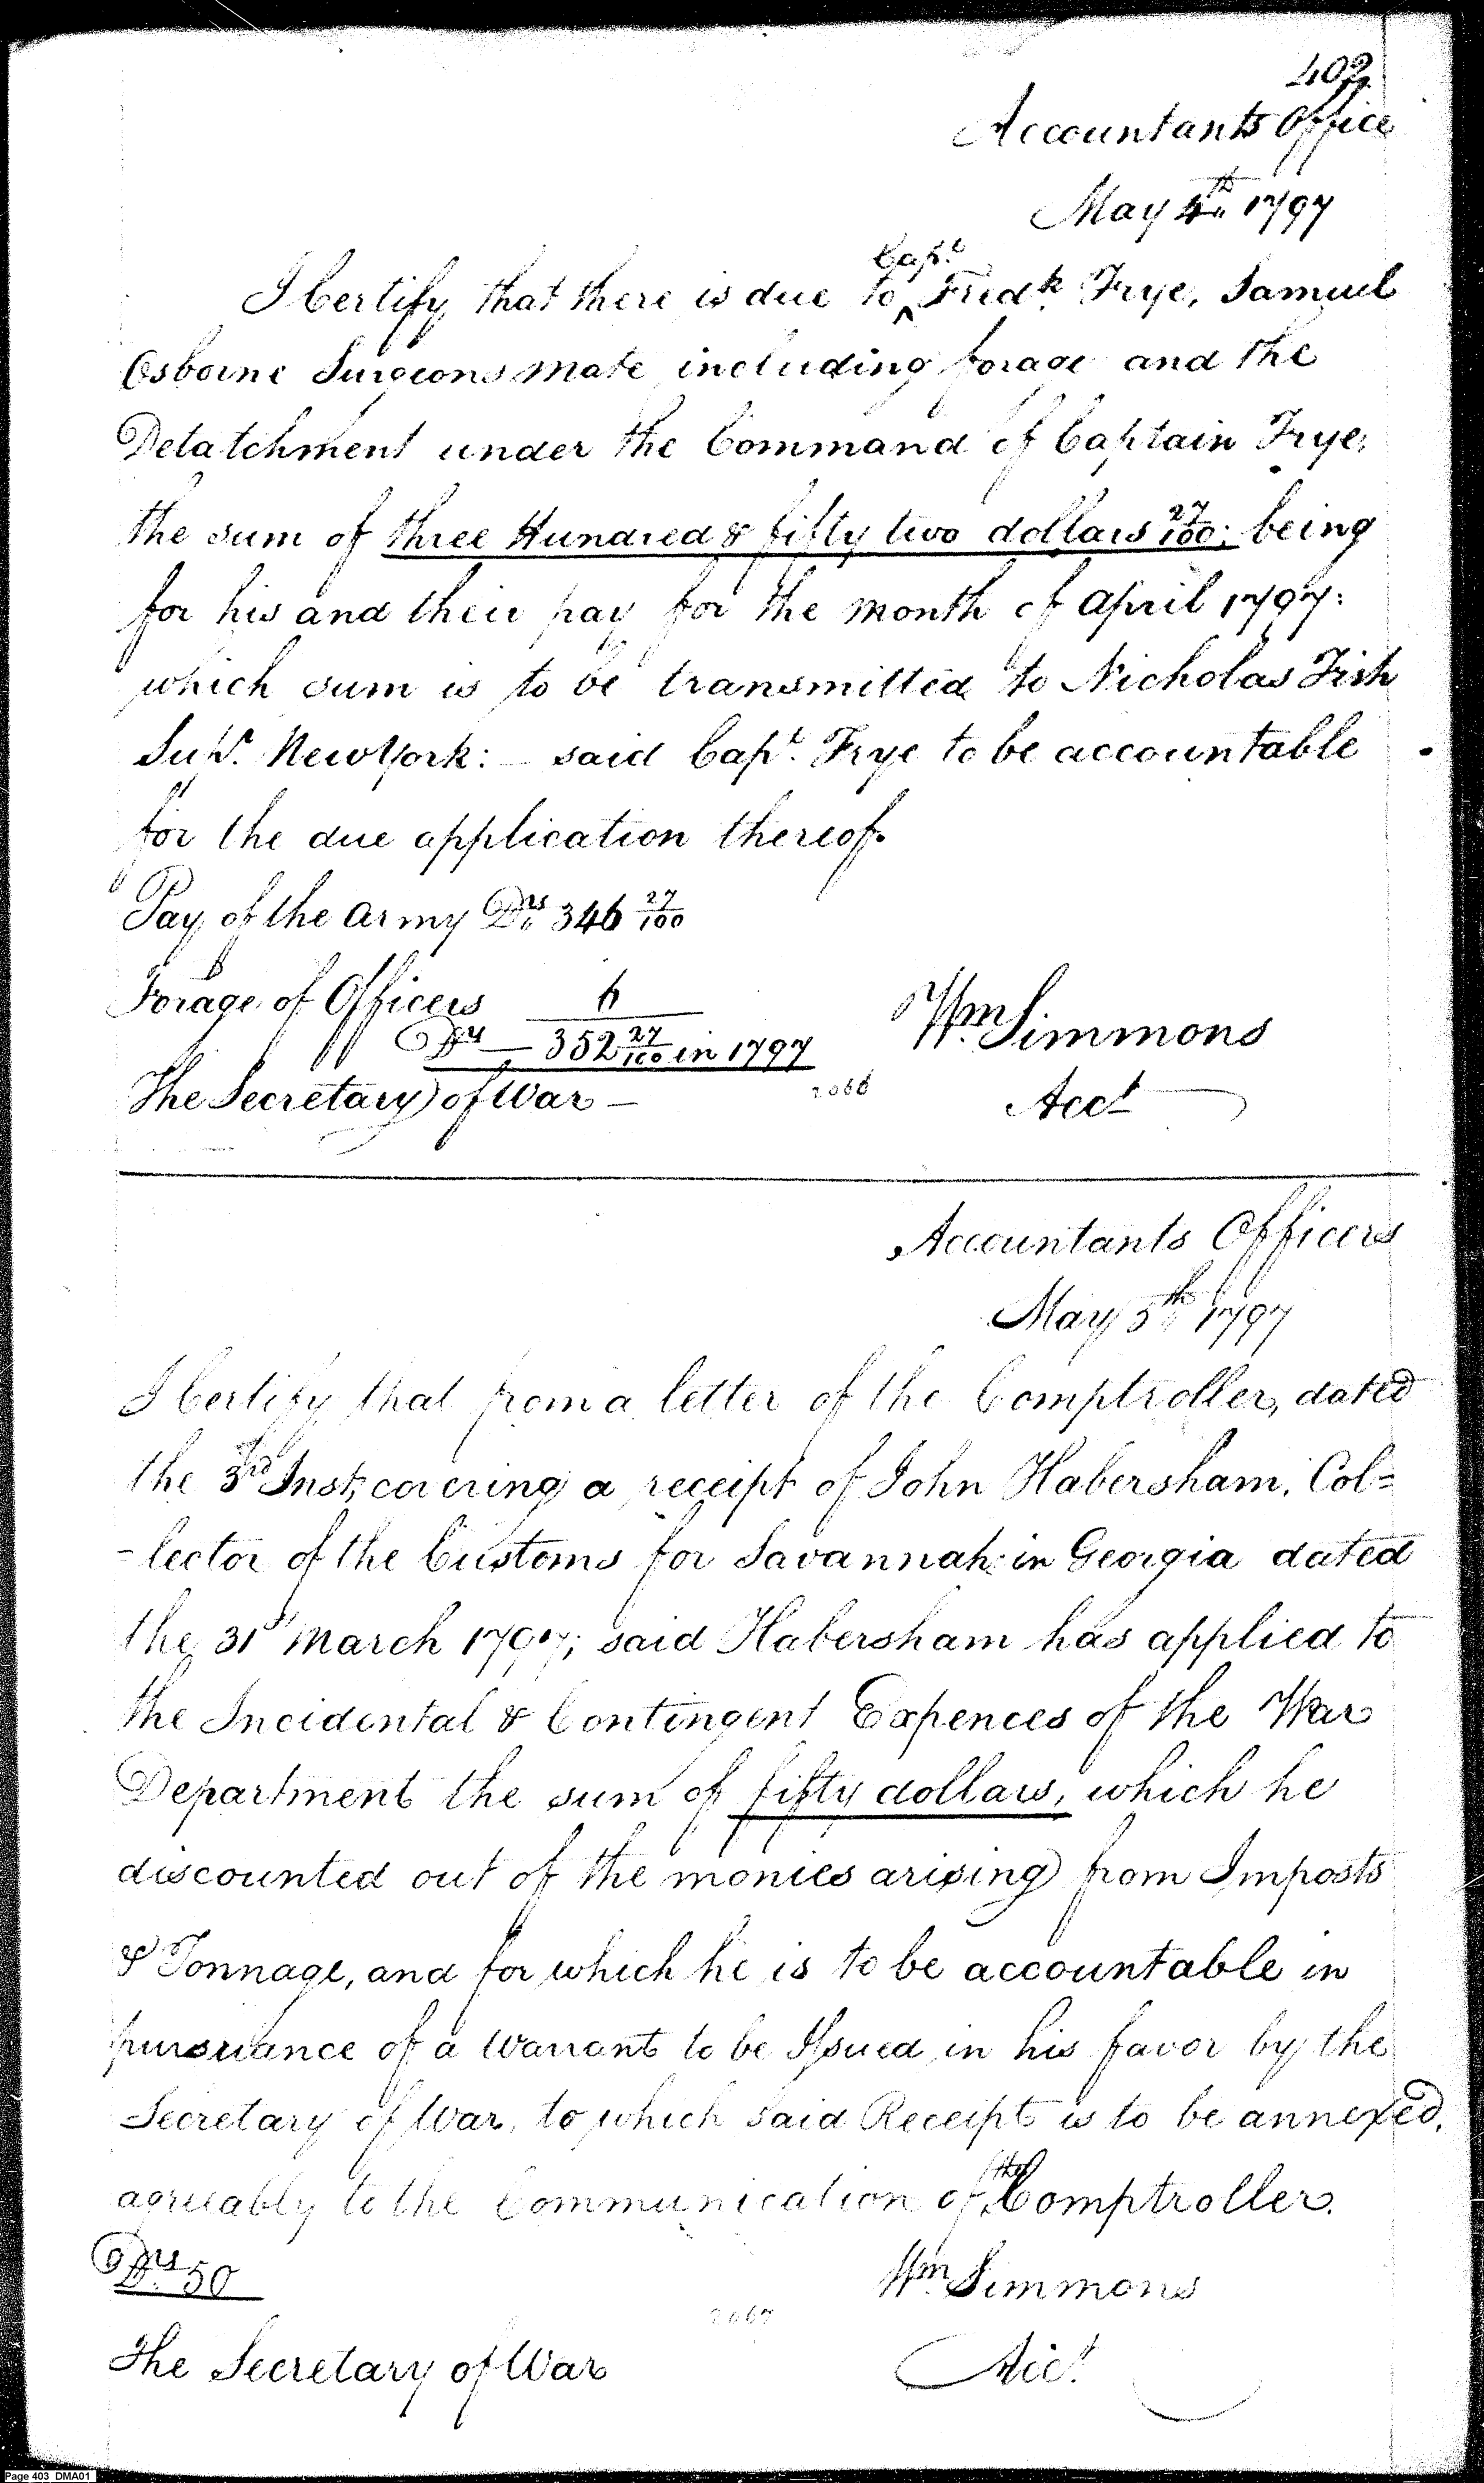 402
Accountants Office
May 4th 1797
I Certify that there is due to Capt. Fredk. Frye, Samuel
Osborne Surgeons mate including forage and the
Detatchment under the Command of Captain Frye,
the sum of three Hundred & fifty two dollars 27/100; being
for his and their pay for the month of April 1797:
which sum is to be transmitted to Nicholas Fish
Supr. New York: said Capt. Frye to be accountable
for the due application thereof.
Pay of the Army Drs 346 27/100
Forage of Officers 6
Drs — 352 27/100 in 1797
Wm Simmons
The Secretary of War —
2066
Acct
Accountants Officers
May 5th 1797
I Certify that from a letter of the Comptroller, dated
the 3rd Inst; covering a receipt of John Habersham, Col=
-lector of the Customs for Savannah: in Georgia dated
the 31st March 1797; said Habersham has applied to
the Incidental & Contingent Expences of the War
Department the sum of fifty dollars, which he
discounted out of the monies arising from Imposts
& Tonnage, and for which he is to be accountable in
pursuance of a Warrant to be Issued in his favor by the
Secretary of War, to which said Receipt is to be annexed,
agreeably to the Communication of the Comptroller.
Drs 50
Wm Simmons
2067
The Secretary of War
Acct.
Page 403 DMA01